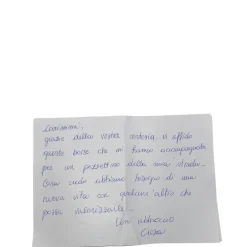 Carissima,
questo della vostra  vi affido
queste borse che mi hanno accompagnato
per un pezzettino della mia strada..
Ora credo abbiano bisogno di una
nuova vita con qualcun'altro che
possa valorizzarle..
Un abbraccio